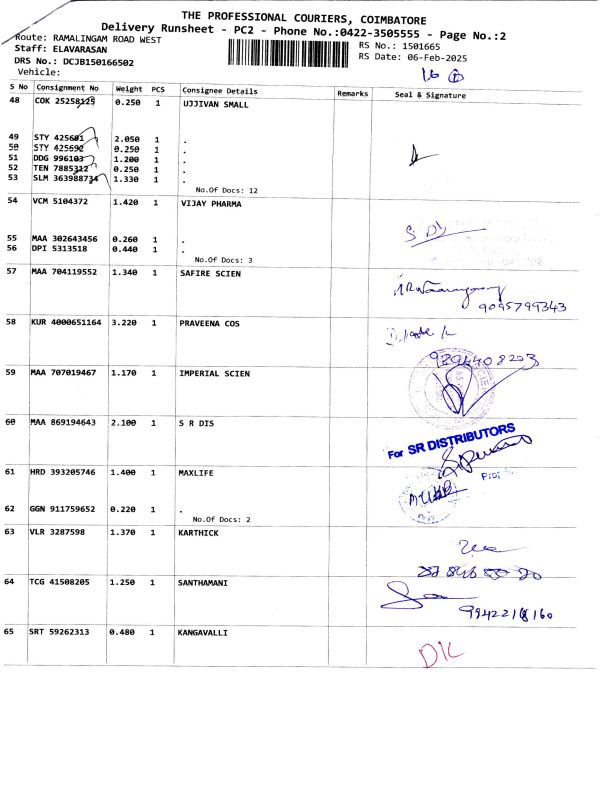 THE PROFESSIONAL COURIERS, COIMBATORE
Delivery Runsheet - PC2 - Phone No.:0422-3505555 - Page No.:2
Route: RAMALINGAM ROAD WEST
Staff: ELAVARASAN
RS No.: 1501665
DRS No.: DCJB150166502
RS Date: 06-Feb-2025
Vehicle:
16
S No Consignment No Weight PCS Consignee Details Remarks Seal & Signature
48 COK 25258125 0.250 1 UJJIVAN SMALL
49 STY 425691 2.050 1 .
50 STY 425692 0.250 1 .
51 DDG 996103 1.200 1 .
52 TEN 7885312 0.250 1 .
53 SLM 363988734 1.330 1 .
No.Of Docs: 12
54 VCM 5104372 1.420 1 VIJAY PHARMA
55 MAA 302643456 0.260 1 .
56 DPI 5313518 0.440 1 .
No.Of Docs: 3
57 MAA 704119552 1.340 1 SAFIRE SCIEN
9095799343
58 KUR 4000651164 3.220 1 PRAVEENA COS
9894408223
59 MAA 707019467 1.170 1 IMPERIAL SCIEN
60 MAA 869194643 2.100 1 S R DIS
For SR DISTRIBUTORS
61 HRD 393205746 1.400 1 MAXLIFE
62 GGN 911759652 0.220 1 .
No.Of Docs: 2
63 VLR 3287598 1.370 1 KARTHICK
64 TCG 41508205 1.250 1 SANTHAMANI
65 SRT 59262313 0.480 1 KANGAVALLI